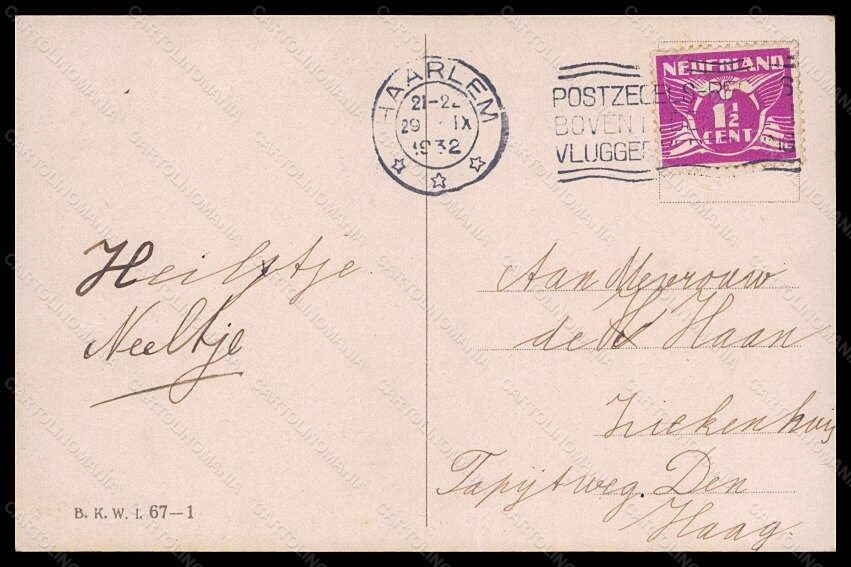 HAARLEM
21-22
29 IX
1932
POSTZEGELS RECHTS
BOVEN
VLUGGER
NEDERLAND
1½
CENT
Heilstje
Neeltje
Aan Mevrouw
de Haan
Ziekenhuis
Tapijtweg. Den
Haag.
B. K. W. I. 67—1
CARTOLINOMANIA